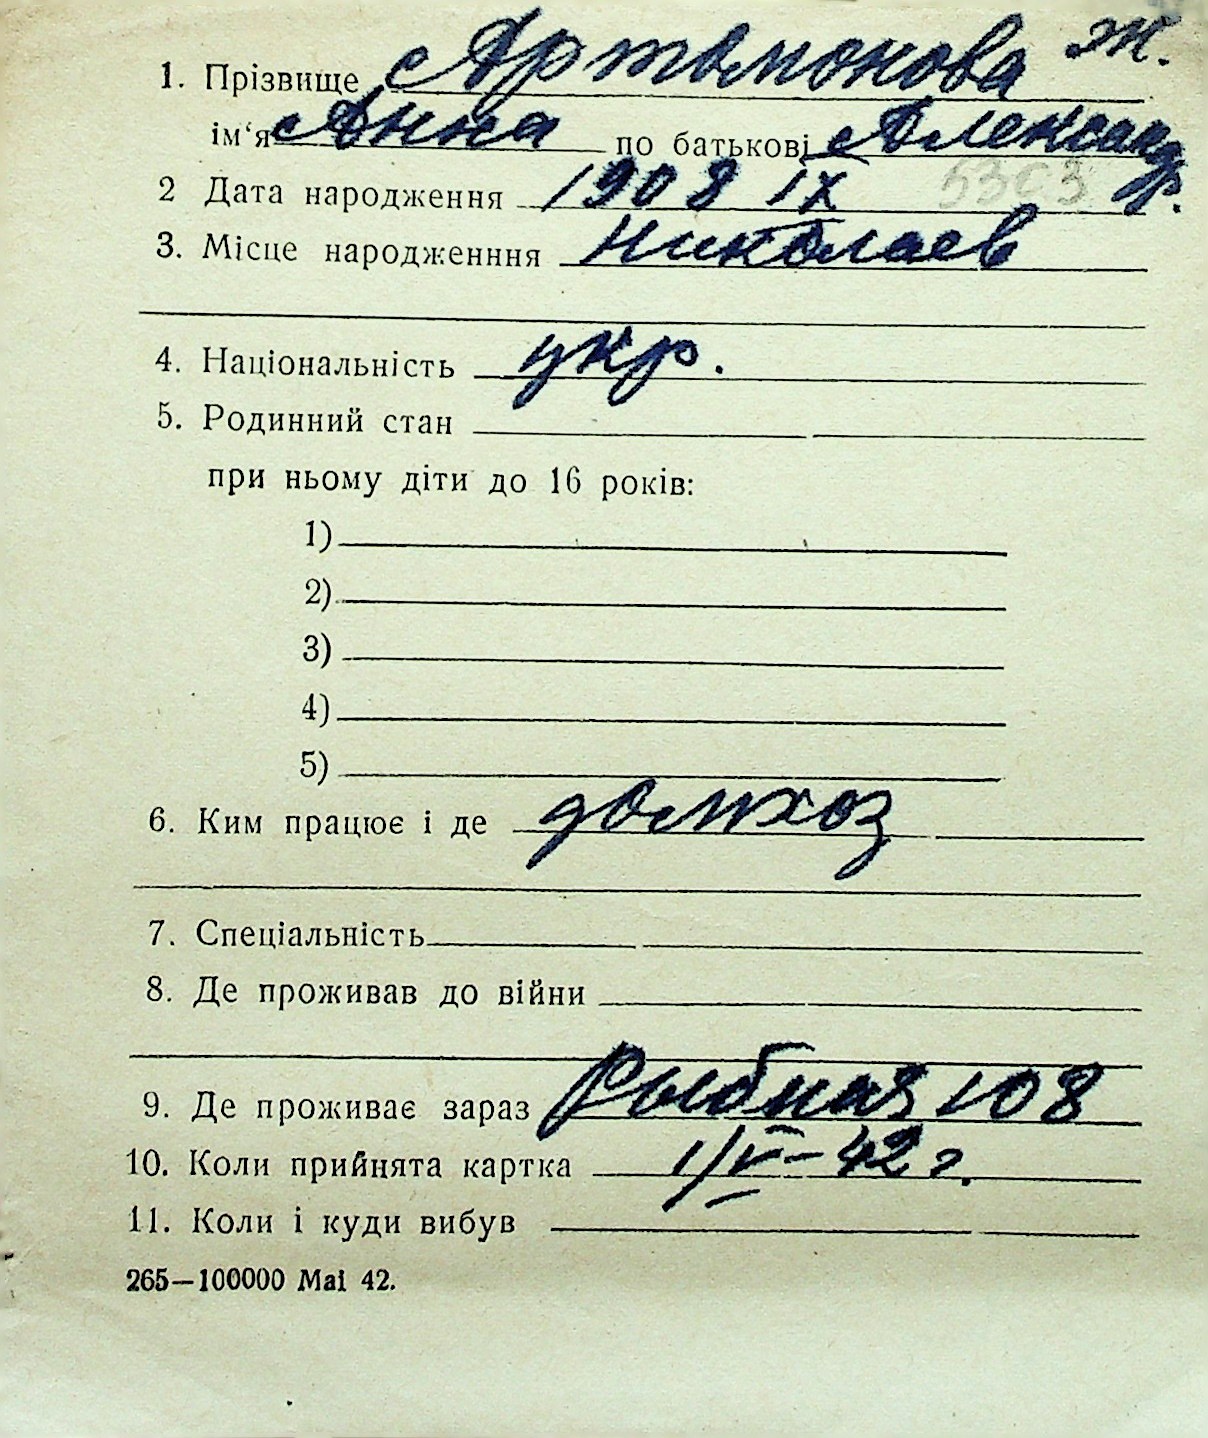 ж.
1. Прізвище Артамонова
ім‘я Анна по батькові Александр.
53с3
2 Дата народження 1908 IX
3. Місце народженння Николаев
4. Національність укр.
5. Родинний стан
при ньому діти до 16 років:
1)
2)
3)
4)
5)
6. Ким працює і де домхоз
7. Спеціальність
8. Де проживав до війни
9. Де проживає зараз Рыбная 108
10. Коли прийнята картка 1/V-42 г.
11. Коли і куди вибув
265—100000 Mai 42.